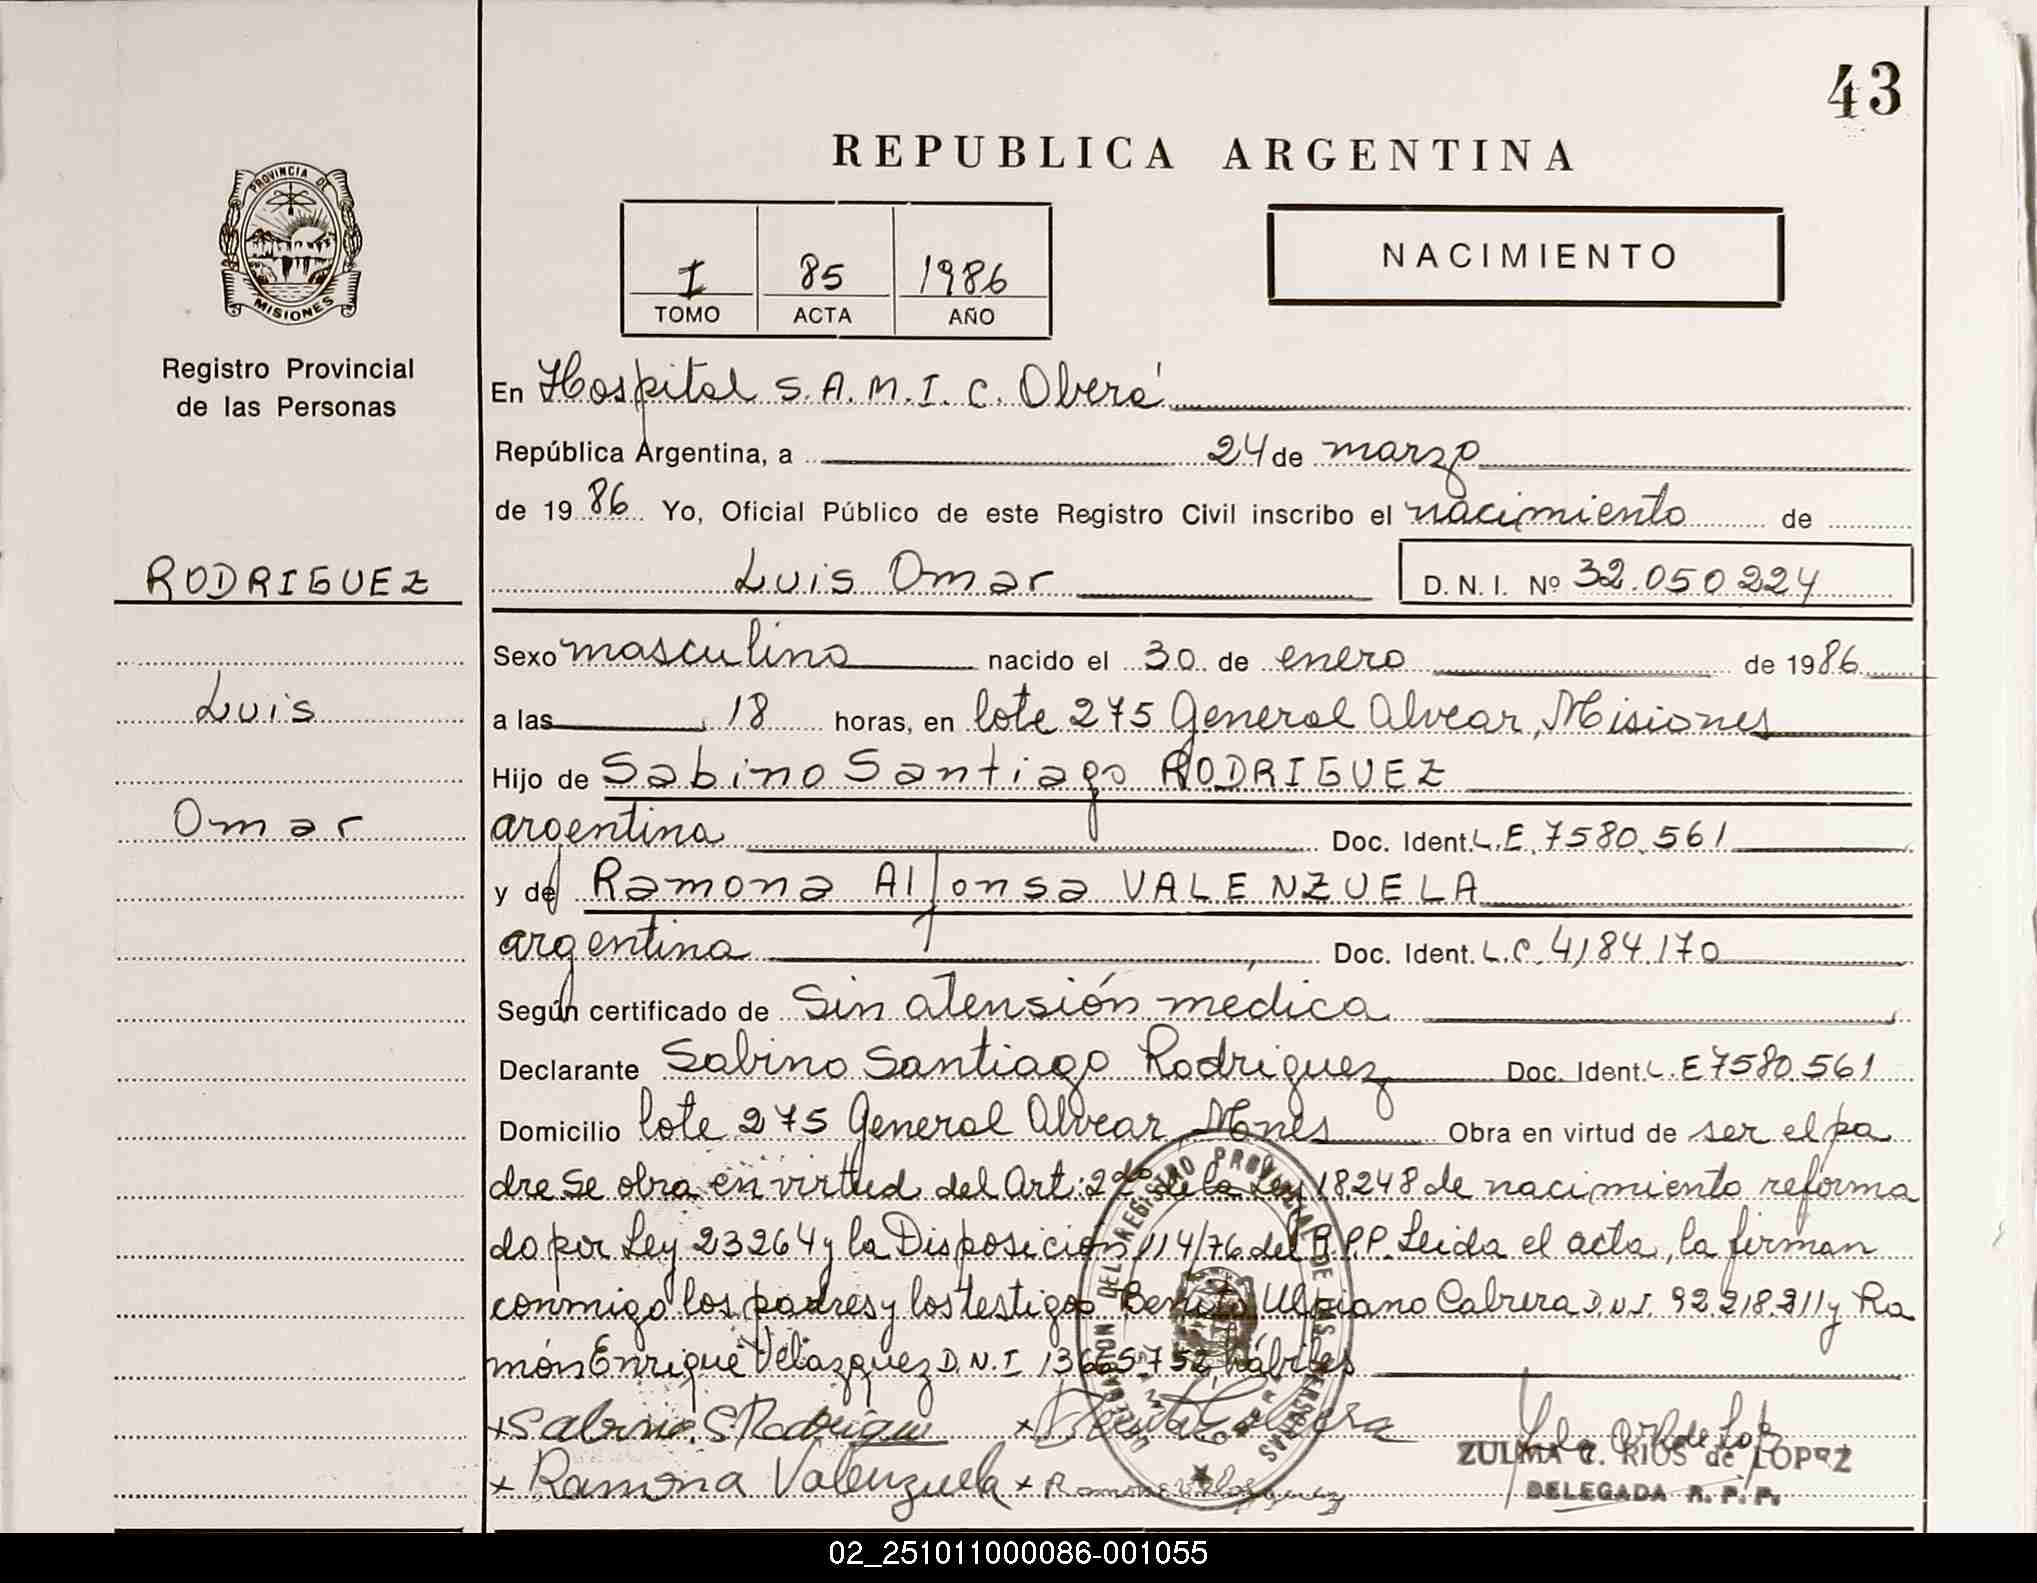 43
REPUBLICA ARGENTINA
PROVINCIA DE
MISIONES
I 85 1986
TOMO ACTA AÑO
NACIMIENTO
Registro Provincial
de las Personas
En Hospital S.A.M.I.C. Oberá
República Argentina, a 24 de marzo
de 1986 Yo, Oficial Público de este Registro Civil inscribo el nacimiento de
RODRIGUEZ
Luis Omar
D. N. I. Nº 32.050224
Sexo masculino nacido el 30 de enero de 1986
Luis
a las 18 horas, en lote 275 General Alvear, Misiones
Hijo de Sabino Santiago RODRIGUEZ
Omar
argentina Doc. Ident. L.E. 7580.561
y de Ramona Alfonsa VALENZUELA
argentina, Doc. Ident. L.C. 4184.170
Según certificado de Sin atensión medica
Declarante Sabino Santiago Rodriguez Doc. Ident. L.E 7580.561
Domicilio lote 275 General Alvear Mones Obra en virtud de ser el pa
dre se obra en virtud del Art: 2do de la Ley 18.248 de nacimiento reforma
do por Ley 23264 y la Disposición 114/76 del R.P.P. Leida el acta, la firman
conmigo los padres y los testigos Benito Ulpiano Cabrera D.N.I. 92.218.211 y Ra
món Enrique Velazquez D.N.I 13665752, hábiles
x Sabino S. Rodrigue x Benito Cabrera
x Ramona Valenzuela x Ramon Velazquez
ZULMA C. RIOS de LOPEZ
DELEGADA R. P. P.
DEL REGISTRO PROVINCIAL DE LAS PERSONAS
02_251011000086-001055